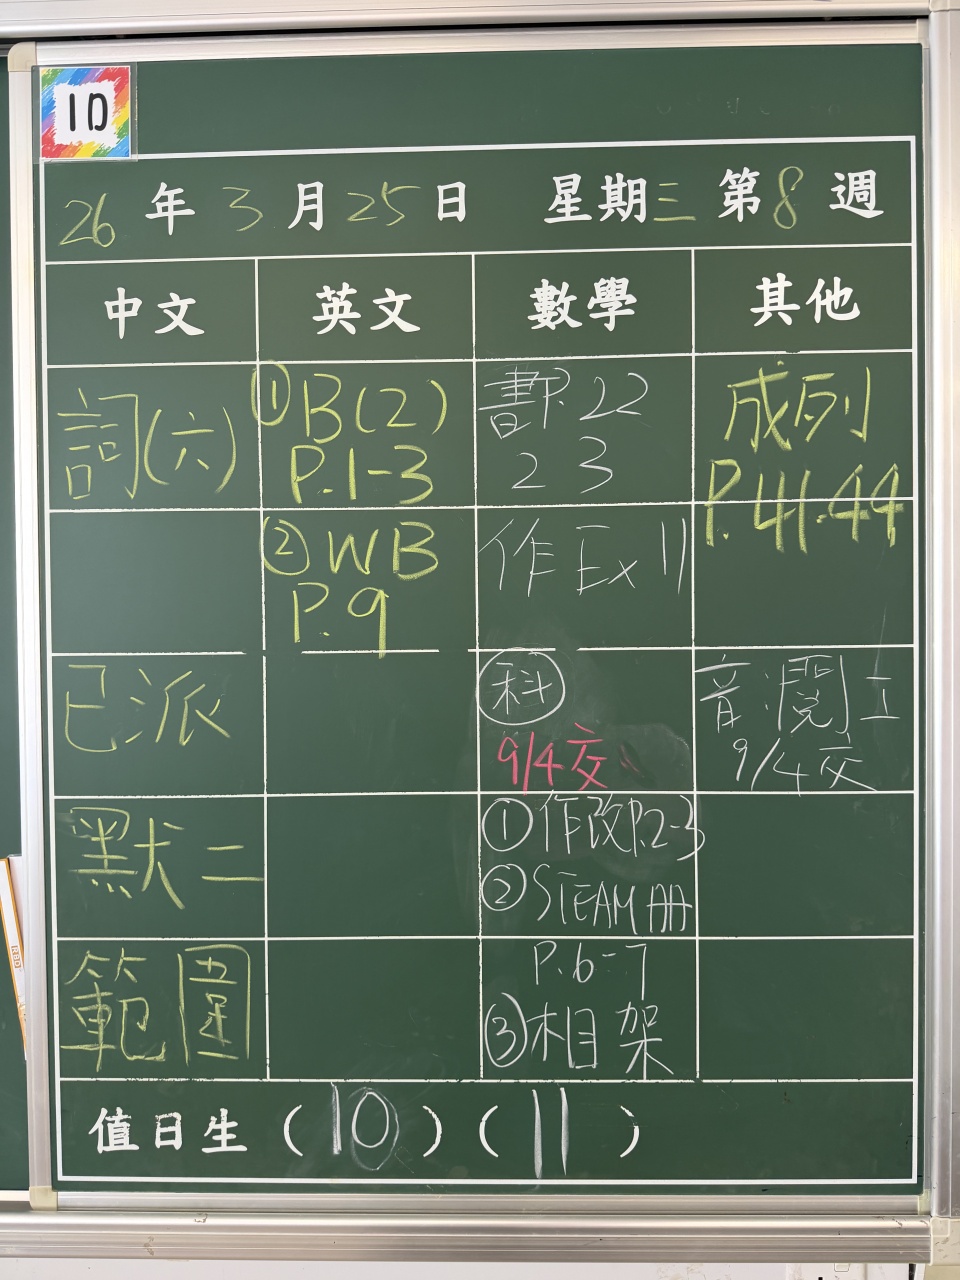 1D
26年3月25日 星期三 第8週
中文 英文 數學 其他
詞(六)
已派
默二
範圍
①B(2)
P.1-3
②WB
P.9
書P.22
23
作Ex 11
科
9/4交
①作改P.2-3
②STEAM冊
P.6-7
③相架
成列
P.41.44
音:閱工
9/4交
值日生(10)(11)